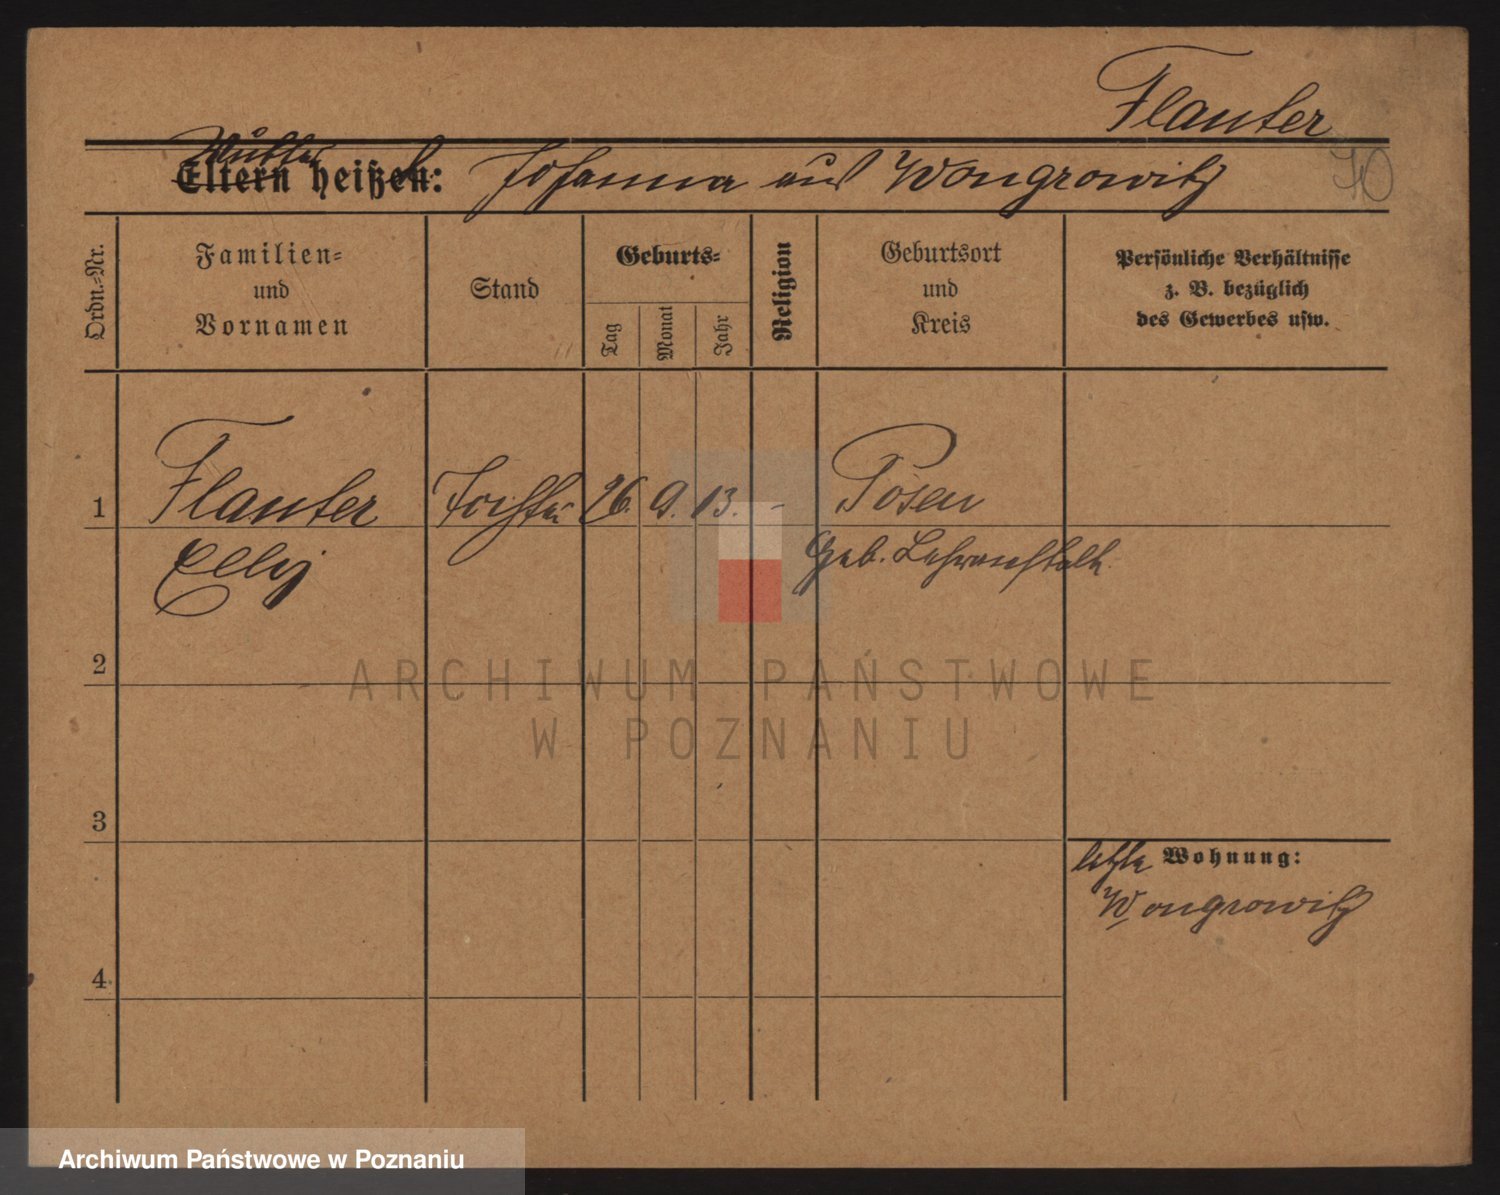 Flanter
Mutter
Eltern heißen: Johanna aus Wongrowitz
70
Ordn.-Nr.
Familien-
und
Vornamen
Stand
Geburts-
Tag
Monat
Jahr
Religion
Geburtsort
und
Kreis
Persönliche Verhältnisse
z. B. bezüglich
des Gewerbes usw.
1 Flanter Tochter 26. 9. 13. - Posen
Elly Geb. Lehranstalt.
2
ARCHIWUM PAŃSTWOWE
W POZNANIU
3
letzte Wohnung:
Wongrowitz
4
Archiwum Państwowe w Poznaniu